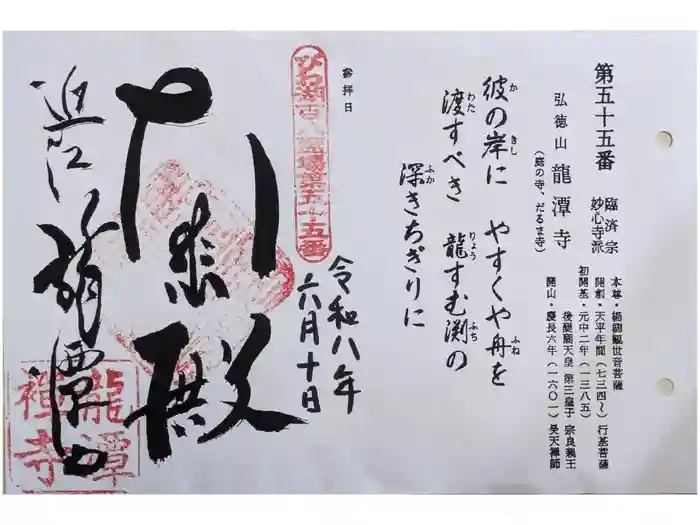 第五十五番
臨済宗
妙心寺派
弘徳山 龍潭寺
(庭の寺、だるま寺)
本尊・楊柳観世音菩薩
開創・天平年間(七三四~)行基菩薩
初開基・元中二年(一三八五)
後醍醐天皇 第三皇子 宗良親王
開山・慶長六年(一六〇一)昊天禅師
彼の岸に やすくや舟を
渡すべき 龍すむ渕の
深きちぎりに
かきしふね
わたりょうふち
ふか
参拝日
令和八年
六月十日
びわ湖百八霊場第五十五番
殿
近江 龍潭
龍潭
禅寺